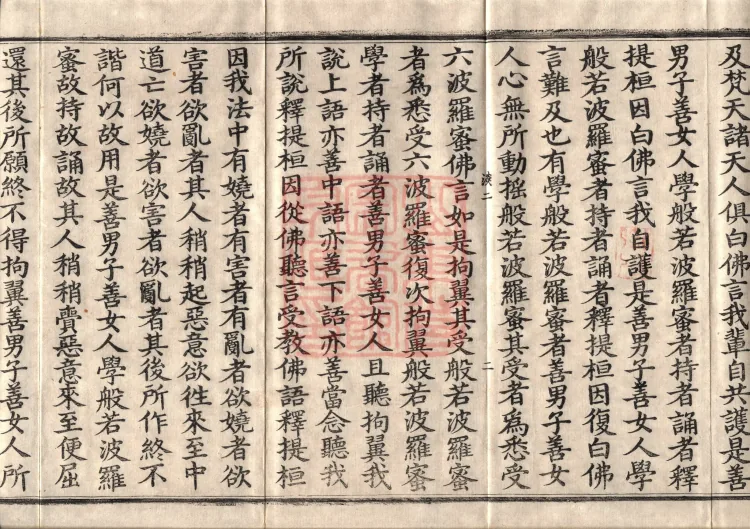 及梵天諸天人俱白佛言我輩自共護是善
男子善女人學般若波羅蜜者持者誦者釋
提桓因白佛言我自護是善男子善女人學
般若波羅蜜者持者誦者釋提桓因復白佛
言難及也有學般若波羅蜜者善男子善女
人心無所動搖般若波羅蜜其受者爲悉受
六波羅蜜佛言如是拘翼其受般若波羅蜜
者爲悉受六波羅蜜復次拘翼般若波羅蜜
學者持者誦者善男子善女人且聽拘翼我
說上語亦善中語亦善下語亦善當念聽我
所說釋提桓因從佛聽言受教佛語釋提桓
因我法中有嬈者有害者有亂者欲嬈者欲
害者欲亂者其人稍稍起惡意欲往來至中
道亡欲嬈者欲害者欲亂者其後所作終不
諧何以故用是善男子善女人學般若波羅
蜜故持故誦故其人稍稍賷惡意來至便屈
還其後所願終不得拘翼善男子善女人所